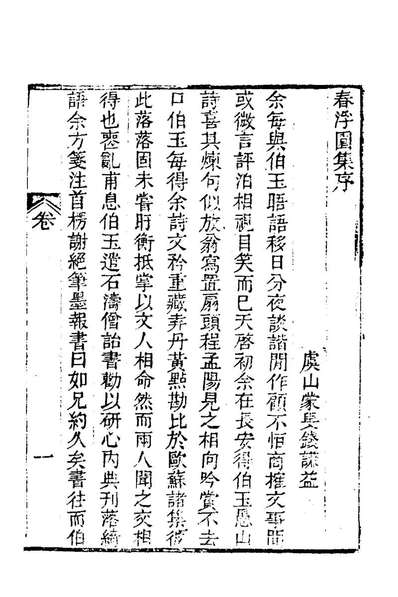 春浮園集序
虞山蒙叟錢謙益
余每與伯玉晤語移日分夜談諧閒作顧不恒商推文事間
或微言評泊相視目笑而已天啓初余在長安得伯玉愚山
詩喜其煉句似放翁寫置扇頭程孟陽見之相向吟賞不去
口伯玉每得余詩文矜重藏弆丹黃點勘比於歐蘇諸集彼
此落落固未嘗盱衡抵掌以文人相命然而兩人聞之交相
得也喪亂甫息伯玉遣石濤僧詒書勸以研心內典刊落綺
語余方箋注首楞謝絕筆墨報書曰如兄約久矣書往而伯
卷
一